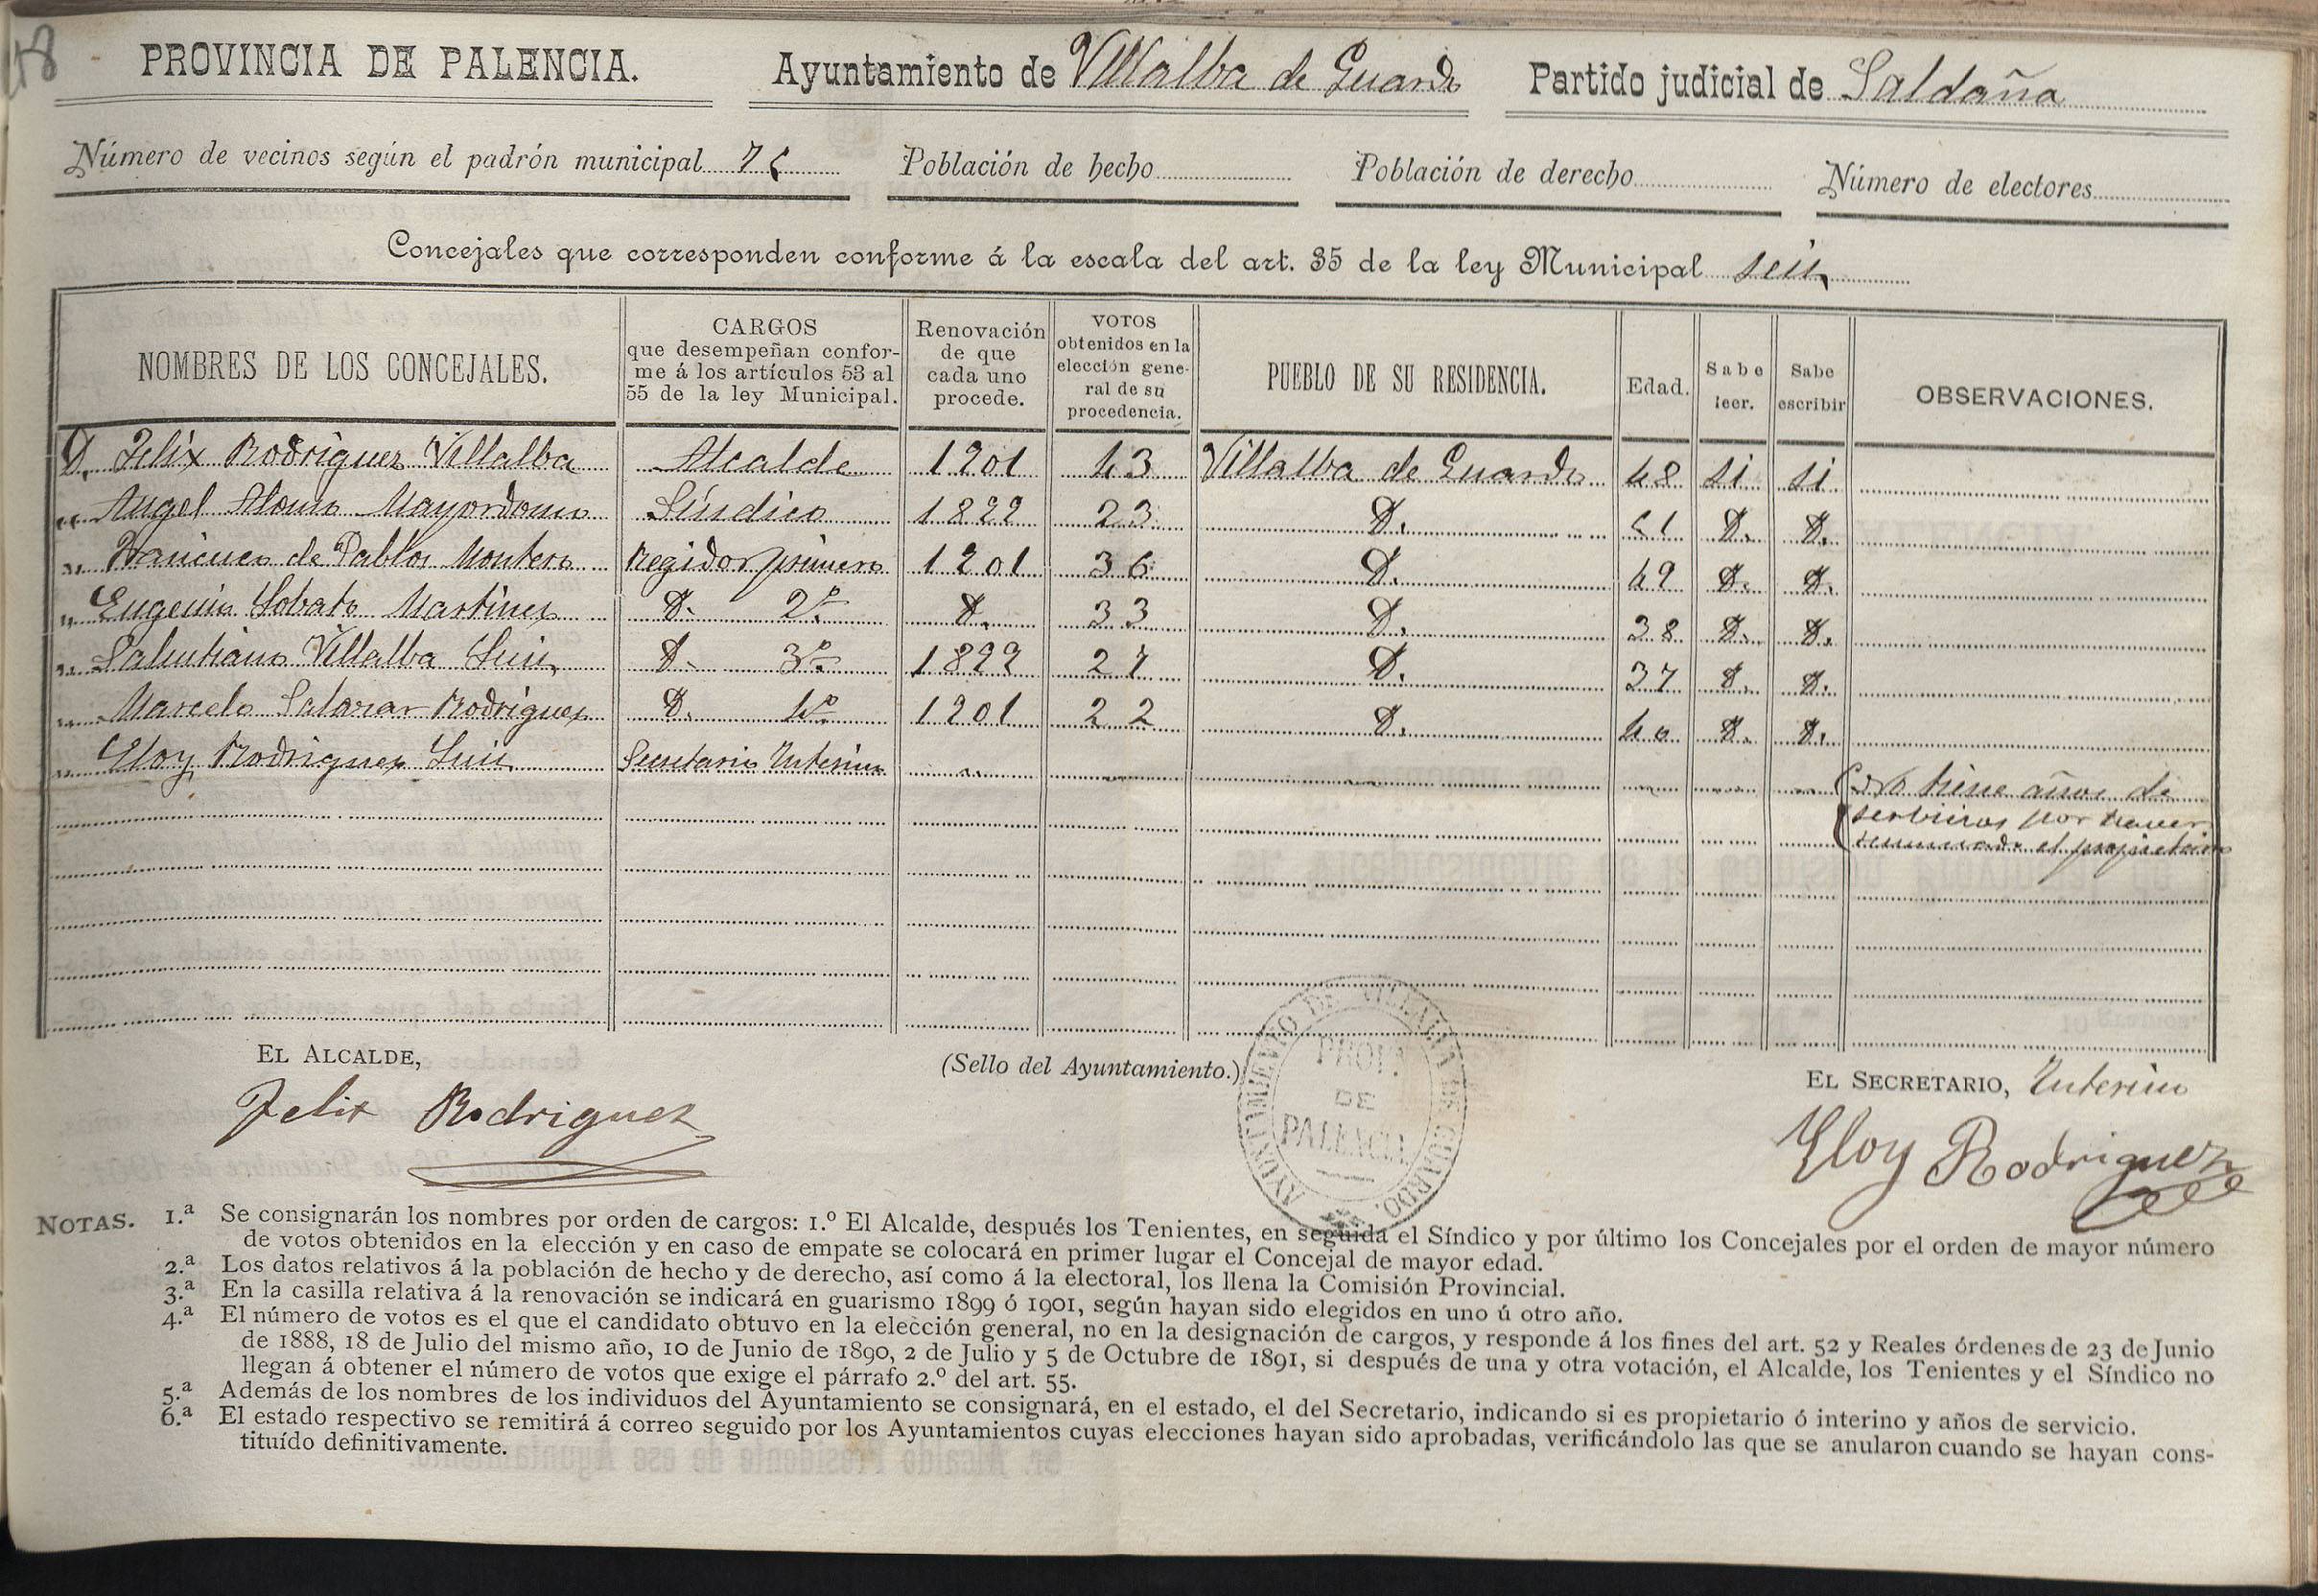 PROVINCIA DE PALENCIA. Ayuntamiento de Villalba de Guardo Partido judicial de Saldaña
Número de vecinos según el padrón municipal 75 Población de hecho Población de derecho Número de electores
Concejales que corresponden conforme á la escala del art. 35 de la ley Municipal seis
NOMBRES DE LOS CONCEJALES. CARGOS que desempeñan confor-me á los artículos 53 al 55 de la ley Municipal. Renovación de que cada uno procede. VOTOS obtenidos en la elección gene-ral de su procedencia. PUEBLO DE SU RESIDENCIA. Edad. Sabe leer. Sabe escribir OBSERVACIONES.
D. Felix Rodriguez Villalba Alcalde 1901 43 Villalba de Guardo 48 si si
" Angel Alonso Mayordomo Síndico 1899 23 D. 51 D. D.
" Francisco de Pablos Montero Regidor primero 1901 36 D. 49 D. D.
" Eugenio Lobato Martinez D. 2º D. 33 D. 38 D. D.
" Salustiano Villalba Luis D. 3º 1899 27 D. 37 D. D.
" Marcelo Salazar Rodriguez D. 4º 1901 22 D. 40 D. D.
" Eloy Rodriguez Luis Secretario Interino No tiene años de
serbicios por haver
renunciado el propietario
EL ALCALDE, (Sello del Ayuntamiento.) EL SECRETARIO, Interino
Felix Rodriguez
Eloy Rodriguez
AYUNTAMIENTO DE VILLALBA DE GUARDO.
PROV.ª
DE
PALENCIA
NOTAS. 1.ª Se consignarán los nombres por orden de cargos: 1.º El Alcalde, después los Tenientes, en seguida el Síndico y por último los Concejales por el orden de mayor número
de votos obtenidos en la elección y en caso de empate se colocará en primer lugar el Concejal de mayor edad.
2.ª Los datos relativos á la población de hecho y de derecho, así como á la electoral, los llena la Comisión Provincial.
3.ª En la casilla relativa á la renovación se indicará en guarismo 1899 ó 1901, según hayan sido elegidos en uno ú otro año.
4.ª El número de votos es el que el candidato obtuvo en la elección general, no en la designación de cargos, y responde á los fines del art. 52 y Reales órdenes de 23 de Junio
de 1888, 18 de Julio del mismo año, 10 de Junio de 1890, 2 de Julio y 5 de Octubre de 1891, si después de una y otra votación, el Alcalde, los Tenientes y el Síndico no
llegan á obtener el número de votos que exige el párrafo 2.º del art. 55.
5.ª Además de los nombres de los individuos del Ayuntamiento se consignará, en el estado, el del Secretario, indicando si es propietario ó interino y años de servicio.
6.ª El estado respectivo se remitirá á correo seguido por los Ayuntamientos cuyas elecciones hayan sido aprobadas, verificándolo las que se anularon cuando se hayan cons-
tituído definitivamente.